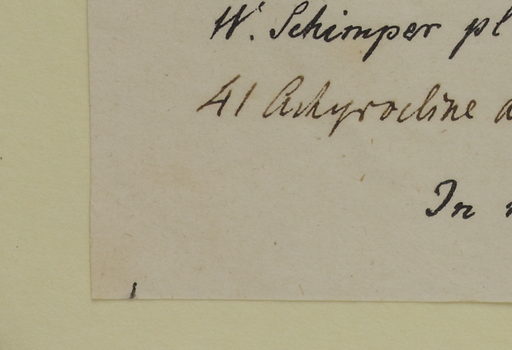 W. Schimper pl
41 Achyrocline
In